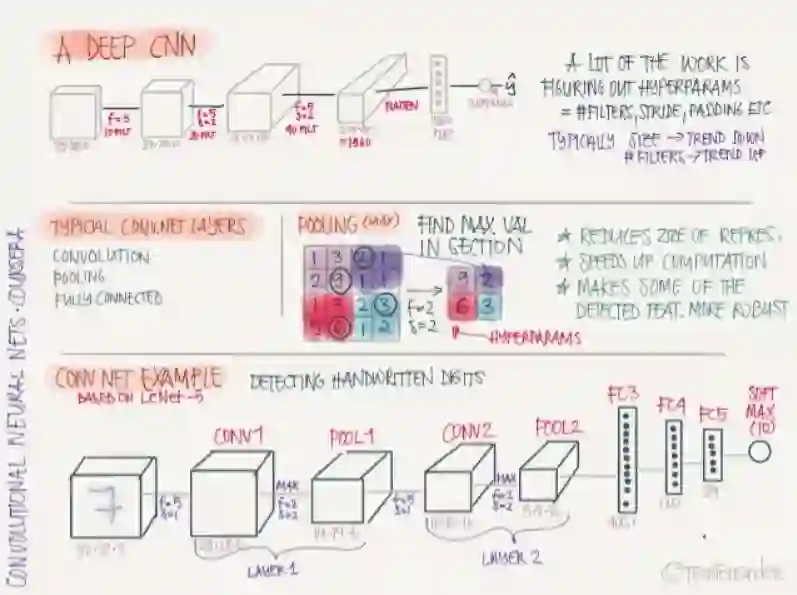 A DEEP CNN
f=5
10 FILT
f=5
s=2
20 FILT
f=5
s=2
40 FILT
=1960
FLATTEN
ŷ
A LOT OF THE WORK IS
FIGURING OUT HYPERPARAMS
= #FILTERS, STRIDE, PADDING ETC
TYPICALLY SIZE → TREND DOWN
#FILTERS → TREND UP
TYPICAL CONVNET LAYERS
CONVOLUTION
POOLING
FULLY CONNECTED
POOLING (MAX)
FIND MAX. VAL
IN SECTION
1 3 2 1
2 9 1 1
1 3 2 3
5 6 1 2
f=2
s=2
9 2
6 3
HYPERPARAMS
★ REDUCES SIZE OF REPRES.
★ SPEEDS UP COMPUTATION
★ MAKES SOME OF THE
DETECTED FEAT. MORE ROBUST
CONV NET EXAMPLE
BASED ON LeNet-5
DETECTING HANDWRITTEN DIGITS
7
f=5
s=1
CONV1
MAX
f=2
s=2
POOL1
f=5
s=1
CONV2
MAX
f=2
s=2
POOL2
FC3
FC4
FC5
SOFT
MAX
(10)
LAYER 1
LAYER 2
CONVOLUTIONAL NEURAL NETS · COURSERA